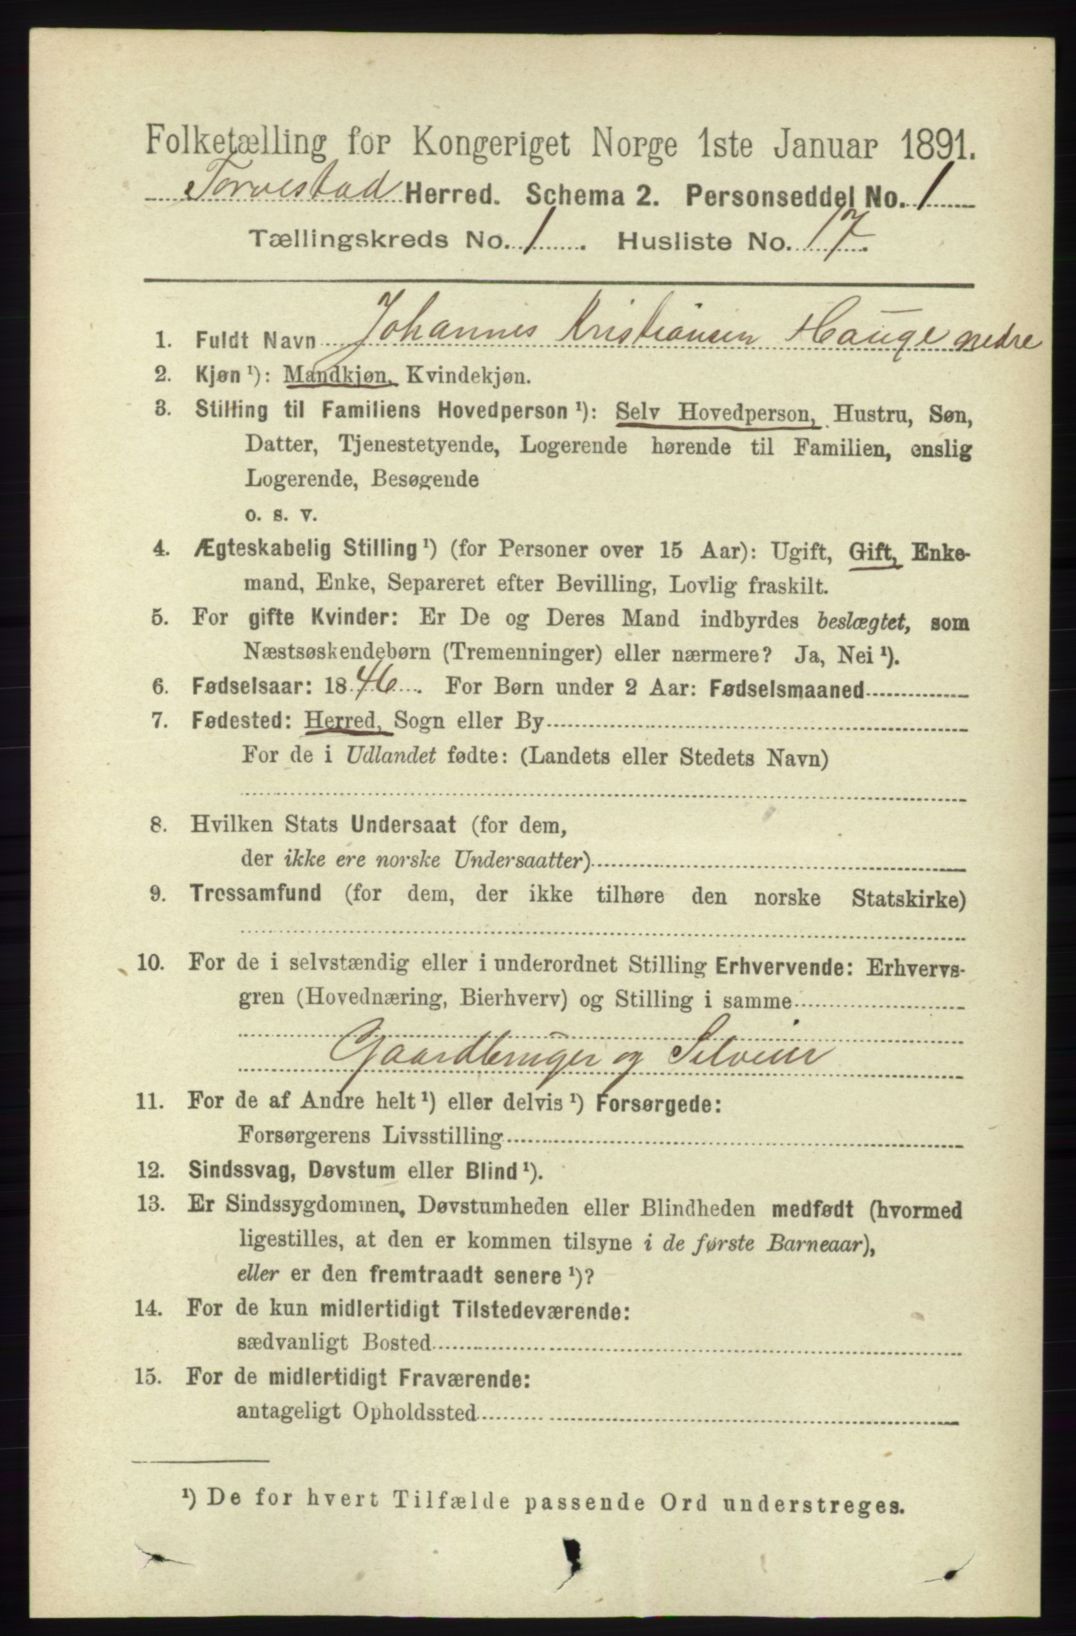 Folketælling for Kongeriget Norge 1ste Januar 1891.
Torvestad Herred. Schema 2. Personseddel No. 1
Tællingskreds No. 1. Husliste No. 17.
1. Fuldt Navn Johannes Kristiansen Hauge nedre
2. Kjøn ¹): Mandkjøn, Kvindekjøn.
3. Stilling til Familiens Hovedperson ¹): Selv Hovedperson, Hustru, Søn,
Datter, Tjenestetyende, Logerende hørende til Familien, enslig
Logerende, Besøgende
o. s. v.
4. Ægteskabelig Stilling ¹) (for Personer over 15 Aar): Ugift, Gift, Enke-
mand, Enke, Separeret efter Bevilling, Lovlig fraskilt.
5. For gifte Kvinder: Er De og Deres Mand indbyrdes beslægtet, som
Næstsøskendebørn (Tremenninger) eller nærmere? Ja, Nei ¹).
6. Fødselsaar: 1846. For Børn under 2 Aar: Fødselsmaaned
7. Fødested: Herred, Sogn eller By
For de i Udlandet fødte: (Landets eller Stedets Navn)
8. Hvilken Stats Undersaat (for dem,
der ikke ere norske Undersaatter)
9. Trossamfund (for dem, der ikke tilhøre den norske Statskirke)
10. For de i selvstændig eller i underordnet Stilling Erhvervende: Erhvervs-
gren (Hovednæring, Bierhverv) og Stilling i samme
Gaardbruger og Selveier
11. For de af Andre helt ¹) eller delvis ¹) Forsørgede:
Forsørgerens Livsstilling
12. Sindssvag, Døvstum eller Blind ¹).
13. Er Sindssygdommen, Døvstumheden eller Blindheden medfødt (hvormed
ligestilles, at den er kommen tilsyne i de første Barneaar),
eller er den fremtraadt senere ¹)?
14. For de kun midlertidigt Tilstedeværende:
sædvanligt Bosted
15. For de midlertidigt Fraværende:
antageligt Opholdssted
¹) De for hvert Tilfælde passende Ord understreges.